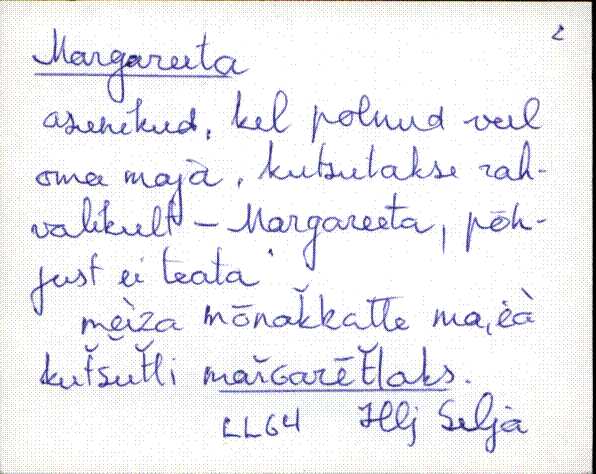 2
Margareeta
asunikud, kel polnud veel
oma maja, kutsutakse rah-
valikult - Margareeta, põh-
just ei teata.
mèiza mōnakkatte ma,èà
kutšutti marGarēt́laks.
LL64 Hlj Selja